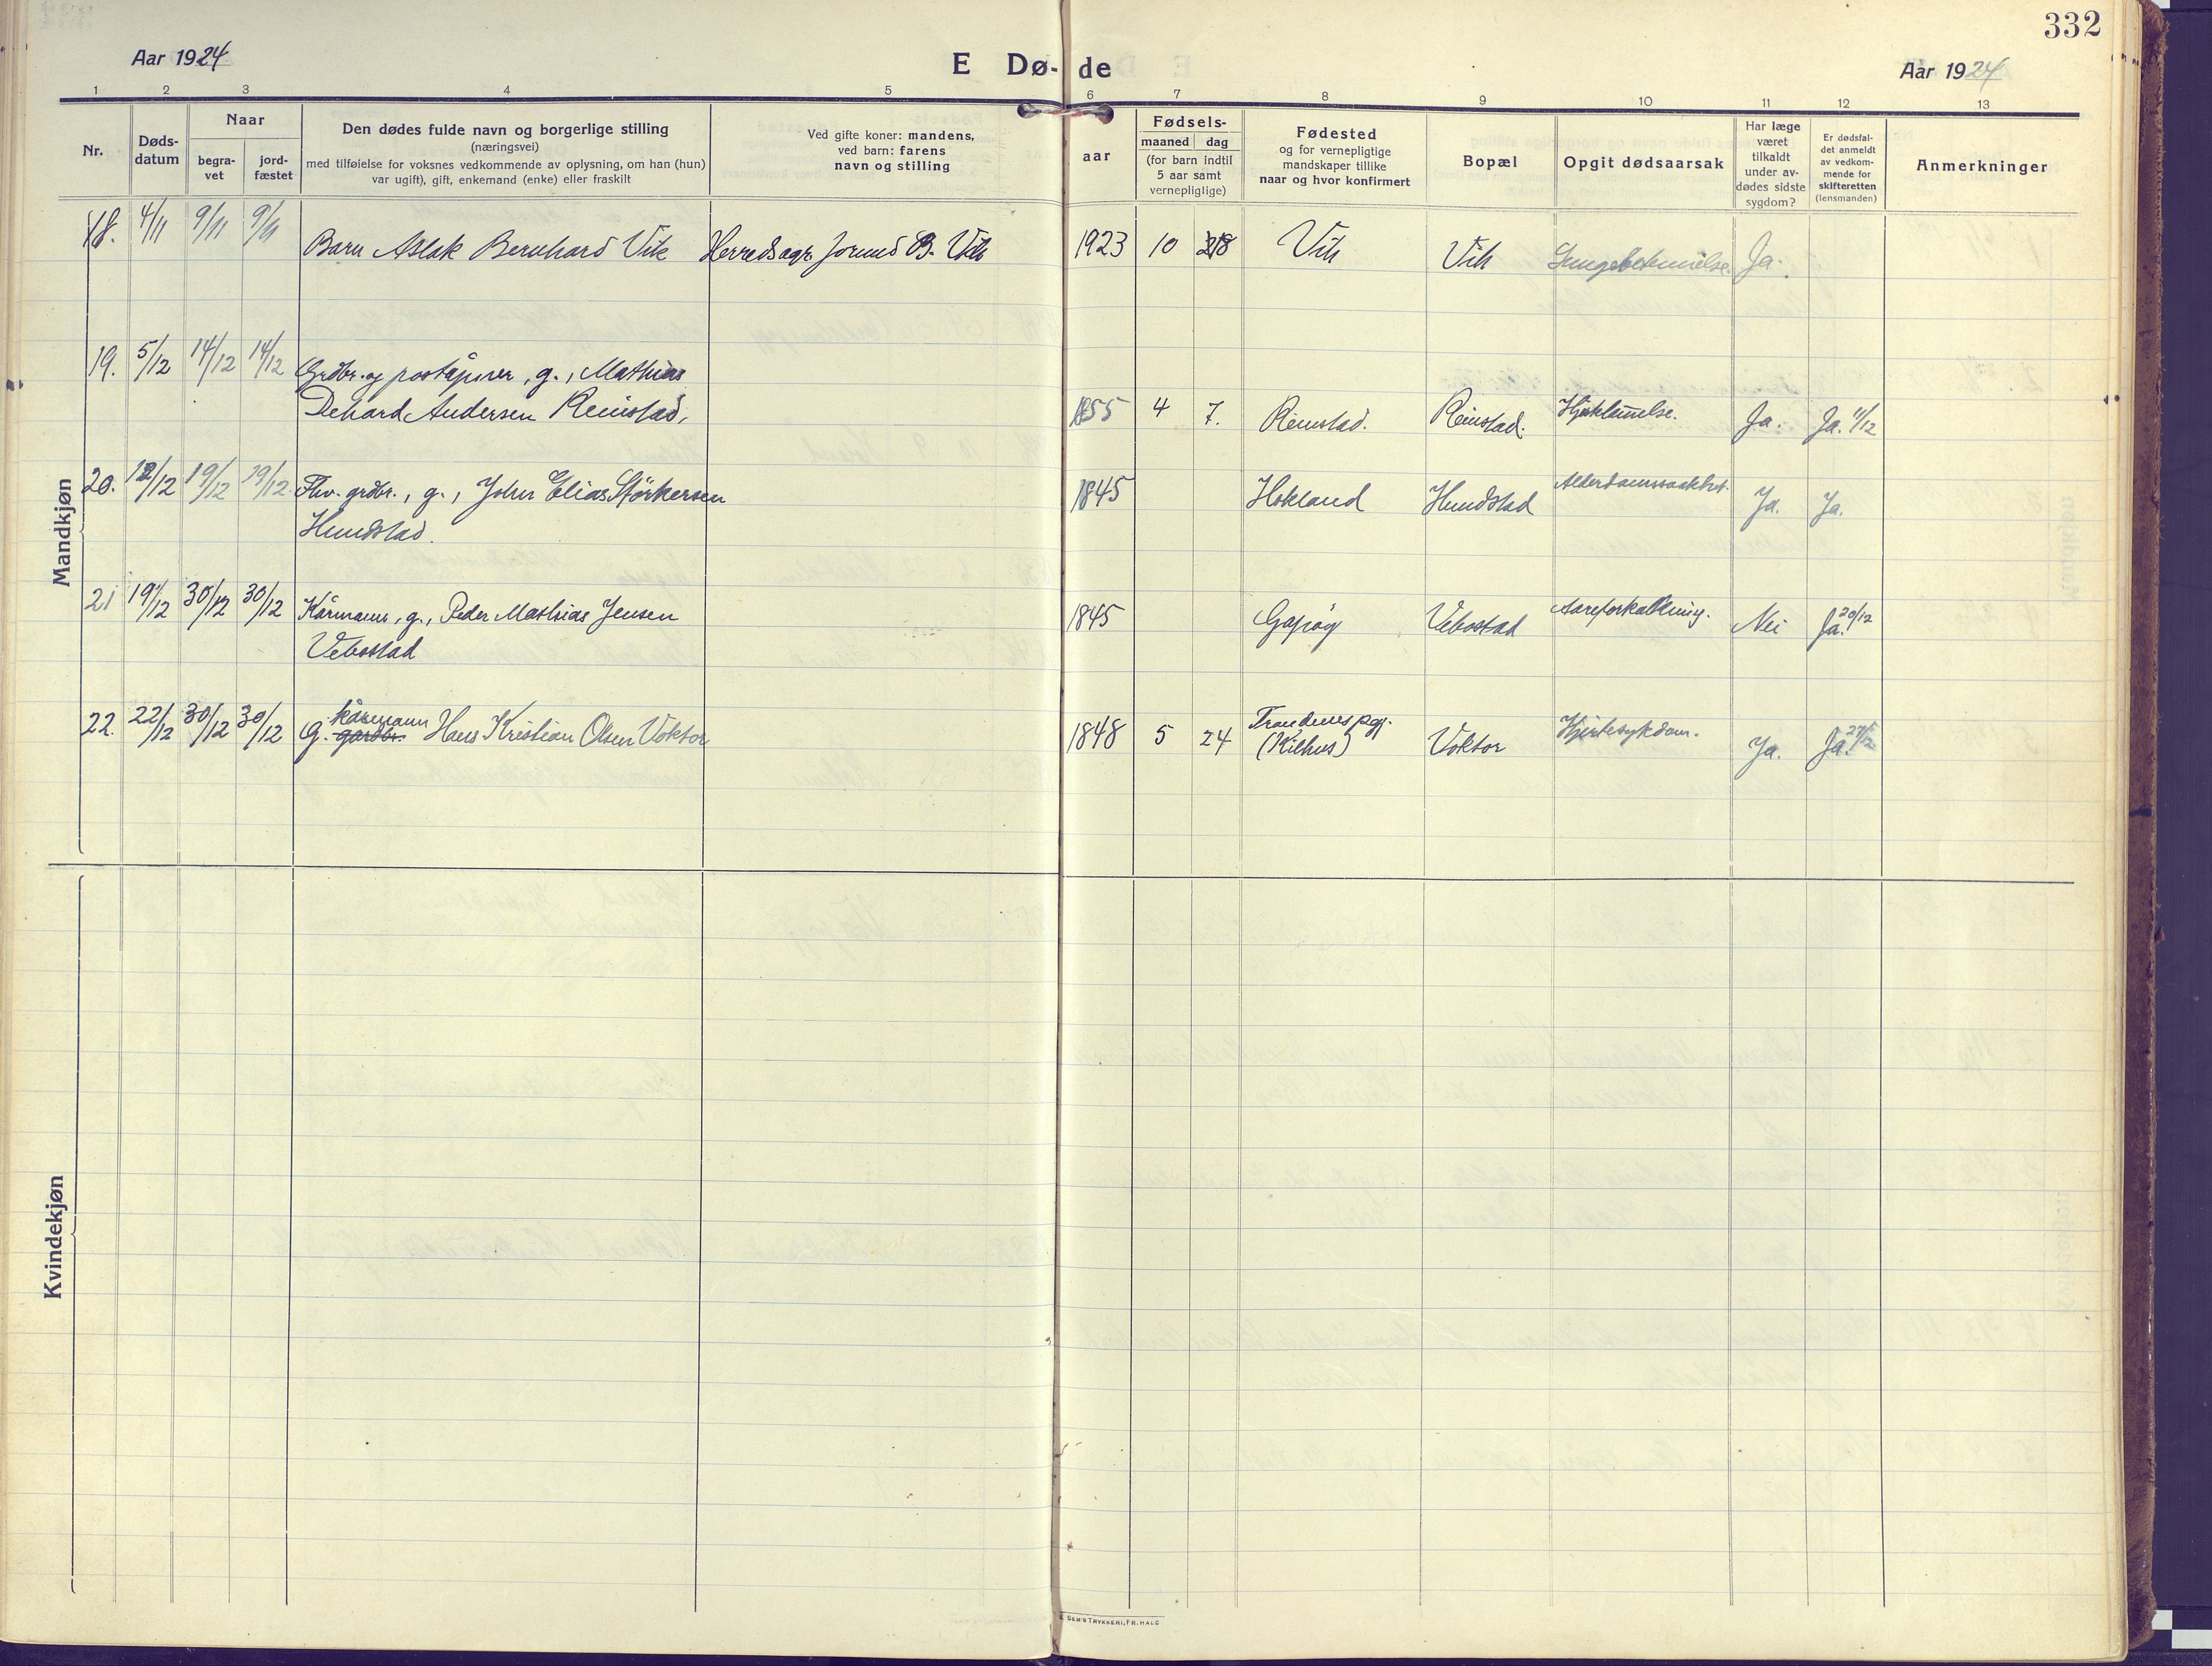 332
Aar 1924
E Dø-de
Aar 1924
1 2 3 4 5 6 7 8 9 10 11 12 13
Nr.
Døds-
datum
Naar
begra-
vet
jord-
fæstet
Den dødes fulde navn og borgerlige stilling
(næringsvei)
med tilføielse for voksnes vedkommende av oplysning, om han (hun)
var ugift), gift, enkemand (enke) eller fraskilt
Ved gifte koner: mandens,
ved barn: farens
navn og stilling
aar
Fødsels-
maaned dag
(for barn indtil
5 aar samt
vernepliglige)
Fødested
og for vernepligtige
mandskaper tillike
naar og hvor konfirmert
Bopæl
Opgit dødsaarsak
Har læge
været
tilkaldt
under av-
dødes sidste
sygdom?
Er dødsfal-
det anmeldt
av vedkom-
mende for
skifteretten
(lensmanden)
Anmerkninger
Mandkjøn
18. 4/11 9/11 9/11 Barn Aslak Bernhard Vik Herredsagr. B. Vik 1923 10 Vik Vik Lungebetennelse. Ja.
19. 5/12 14/12 14/12 Grdbr. og poståpner, g., Mathias
Dehard Andersen Reinstad, 1855 4 7. Reinstad. Reinstad. Hjertelammelse. Ja. Ja. 11/12
20. 12/12 19/12 19/12 Fhv. grdbr., g., John Elias Störkersen 1845 Hokland Hundstad Alderdomssvakhet. Ja. Ja.
Hundstad.
21 19/12 30/12 30/12 Kårmann, g., Peder Mathias Jensen 1845 Gapøy Vebostad Aareforkalkning. Nei Ja. 20/12
Vebostad
22. 22/12 30/12 30/12 G. gardbr. kårmann Hans Kristian Olsen Voktor 1848 5 24 Trondenes pgj.
(Kilhus) Voktor Hjertesykdom. Ja. Ja. 27/12
Kvindekjøn
E. SEM'S TRYKKERI, FR.HALD